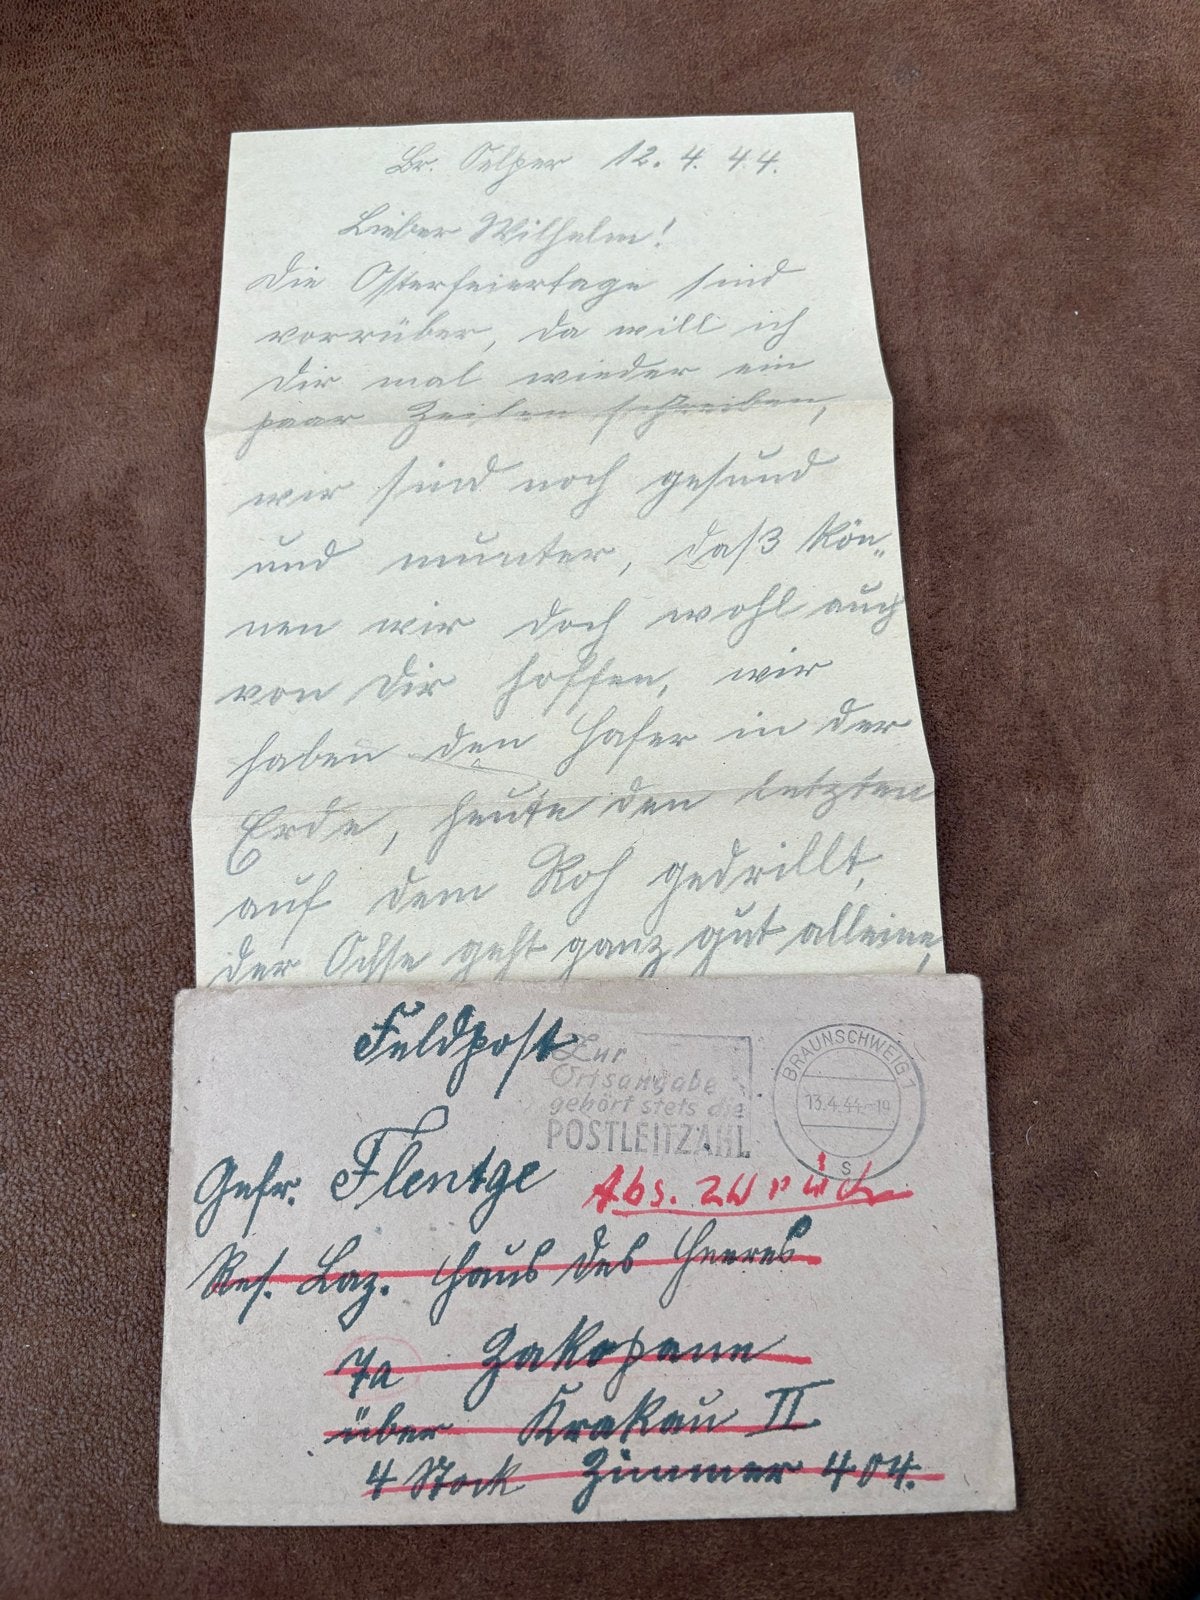 Br. Oelper 12. 4. 44.
Lieber Wilhelm!
Die Osterfeiertage sind
vorrüber, da will ich
Dir mal wieder ein
paar Zeilen schreiben,
wir sind noch gesund
und munter, daß kön„
nen wir doch wohl auch
von Dir hoffen, wir
haben den Hafer in der
Erde, heute den letzten
auf dem Roh gedrillt,
der Ochse geht ganz gut alleine,
Feldpost
Zur
Ortsangabe
gehört stets die
POSTLEITZAHL
BRAUNSCHWEIG 1
13.4.44.-19
s
Gefr. Flentge
Abs. zurück
Res. Laz. Haus des Heeres
7a Zakopane
über Krakau II
4 Stock Zimmer 404.